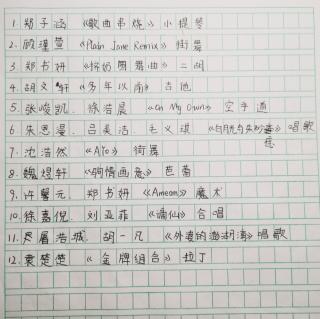 1. 郑子涵 《歌曲串烧》 小提琴
2. 顾瑾萱 《Plain Jane Remix》 街舞
3. 郑书妍 《挤奶圆舞曲》 二胡
4. 胡文轩 《多年以前》 吉他
5. 张峻凯、徐浩晨 《On My Own》 空手道
6. 朱恩漫、吕美洁、毛义琪 《白月光与朱砂痣》 唱歌
7. 沈浩然 《AYo》 街舞
8. 魏煜轩 《驹情画意》 芭蕾
9. 许馨元、郑书妍 《Ameom》 魔术
10. 徐嘉倪、刘亚菲 《谪仙》 合唱
11. 浩城、胡一凡 《外婆的澎湖湾》 唱歌
12. 袁楚楚 《金牌组合》 拉丁